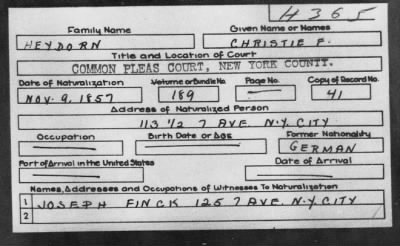 H 365
Family Name Given Name or Names
HEYDORN CHRISTIE F.
Title and Location of Court
COMMON PLEAS COURT, NEW YORK COUNTY.
Date of Naturalization Volume or Bundle No. Page No. Copy of Record No.
NOV. 9, 1857 189 41
Address of Naturalized Person
113 1/2 7 AVE. N.Y. CITY
Occupation Birth Date or Age Former Nationality
GERMAN
Port of Arrival in the United States Date of Arrival
Names, Addresses and Occupations of Witnesses To Naturalization
1 JOSEPH FINCK 125 7 AVE. N.Y. CITY
2